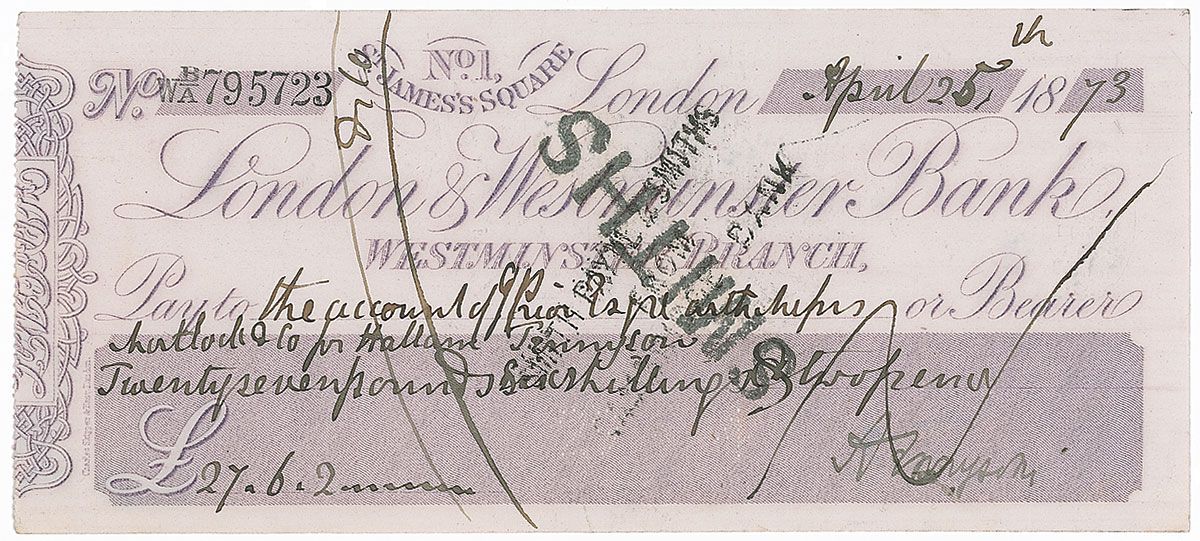 No. W B/A 795723
No. 1, ST. JAMES'S SQUARE
London April 25th, 1873
London & Westminster Bank,
WESTMINSTER BRANCH,
Pay to the account of Prior Esqre with Messrs or Bearer
Matlock & Co for Hallam Tennyson
Twentyseven pounds six shillings & twopence
£27.6.2
A Tennyson
SMITHS
SMITHS
BANK